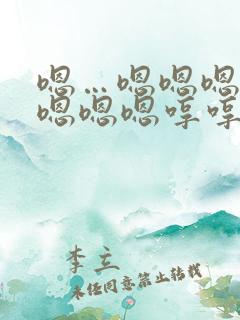 嗯…嗯嗯嗯
嗯嗯嗯哼哼
李立
未经同意禁止转载